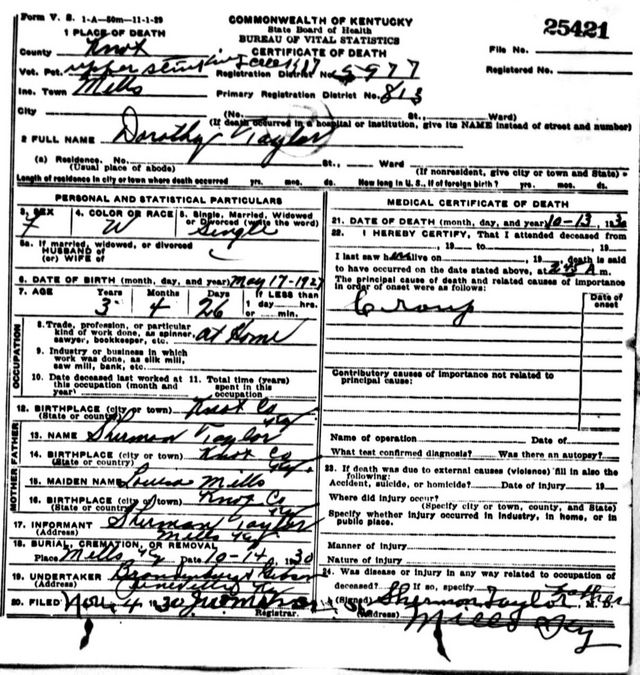 Form V. S. 1-A-50m-11-1-29
COMMONWEALTH OF KENTUCKY
State Board of Health
BUREAU OF VITAL STATISTICS
CERTIFICATE OF DEATH
25421
1 PLACE OF DEATH
County Knox
File No.
Vot. Pct. upper stinking creek
Registration District No. 5977
Registered No.
Inc. Town Mills
Primary Registration District No. 813
City (No. St., Ward)
(If death occurred in a hospital or institution, give its NAME instead of street and number)
2 FULL NAME Dorothy Taylor
(a) Residence. No. St., Ward
(Usual place of abode) (If nonresident, give city or town and State)
Length of residence in city or town where death occurred yrs. mos. ds. How long in U. S., if of foreign birth? yrs. mos. ds.
PERSONAL AND STATISTICAL PARTICULARS
3. SEX F
4. COLOR OR RACE W
5. Single, Married, Widowed or Divorced (write the word) Single
5a. If married, widowed, or divorced
HUSBAND of
(or) WIFE of
6. DATE OF BIRTH (month, day, and year) May 17-1927
7. AGE Years Months Days If LESS than
3 4 26 1 day hrs.
or min.
OCCUPATION
8. Trade, profession, or particular
kind of work done, as spinner, at Home
sawyer, bookkeeper, etc.
9. Industry or business in which
work was done, as silk mill,
saw mill, bank, etc.
10. Date deceased last worked at 11. Total time (years)
this occupation (month and spent in this
year) occupation
12. BIRTHPLACE (city or town) Knox Co
(State or country) Ky
FATHER
13. NAME Sherman Taylor
14. BIRTHPLACE (city or town) Knox Co
(State or country) Ky.
MOTHER
15. MAIDEN NAME Louisa Mills
16. BIRTHPLACE (city or town) Knox Co
(State or country) Ky
17. INFORMANT Sherman Taylor
Mills Ky
18. BURIAL, CREMATION, OR REMOVAL
Place Mills Ky Date 10-14 1930
19. UNDERTAKER
20. FILED Nov. 4 1930
Registrar.
MEDICAL CERTIFICATE OF DEATH
21. DATE OF DEATH (month, day, and year) 10-13, 1930
22. I HEREBY CERTIFY, That I attended deceased from
, 19 to , 19
I last saw h alive on , 19 death is said
to have occurred on the date stated above, at A m.
The principal cause of death and related causes of importance
in order of onset were as follows:
Date of onset
Croup
Contributory causes of importance not related to
principal cause:
Name of operation Date of
What test confirmed diagnosis? Was there an autopsy?
23. If death was due to external causes (violence) fill in also the
following:
Accident, suicide, or homicide? Date of injury 19
Where did injury occur?
(Specify city or town, county, and State)
Specify whether injury occurred in industry, in home, or in
public place.
Manner of injury
Nature of injury
24. Was disease or injury in any way related to occupation of
deceased? If so, specify Father
(Signed) Sherman Taylor M. D.
(Address) Mills Ky